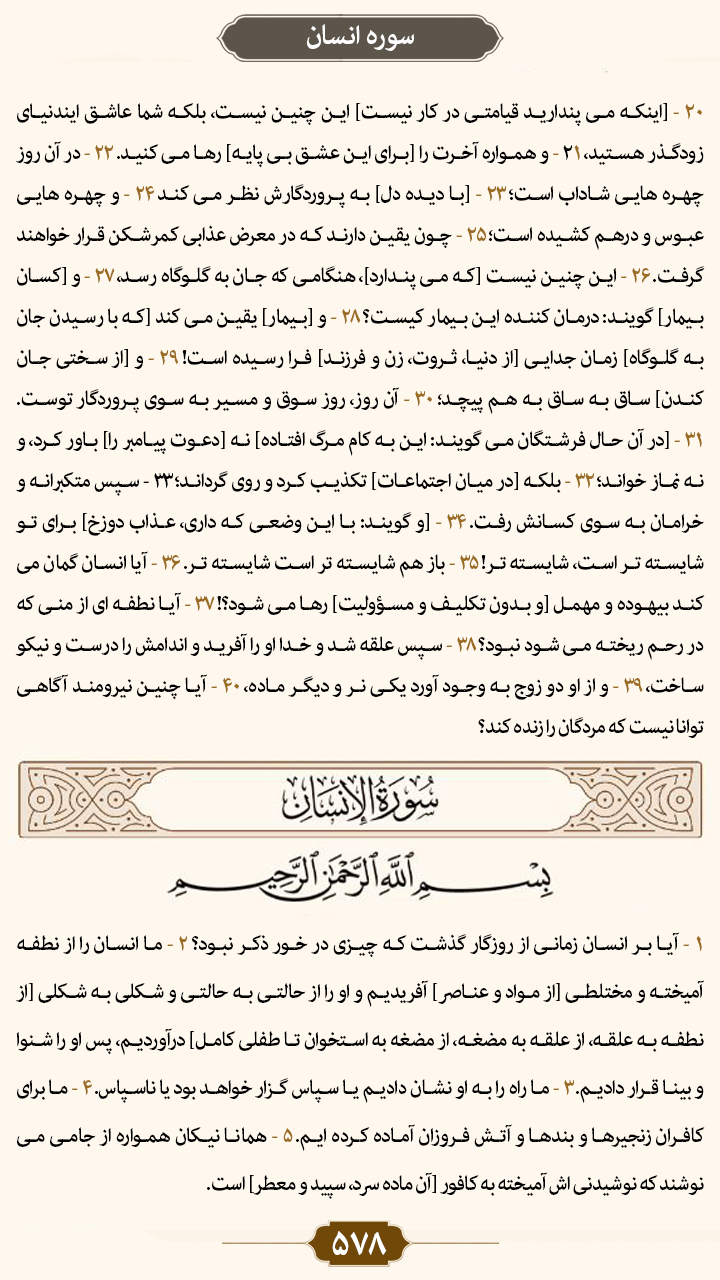 سوره انسان
۲۰ - [اینکه می پندارید قیامتی در کار نیست] این چنین نیست، بلکه شما عاشق ایندنیای
زودگذر هستید،۲۱ - و همواره آخرت را [برای این عشق بی پایه] رها می کنید. ۲۲ - در آن روز
چهره هایی شاداب است؛۲۳ - [با دیده دل] به پروردگارش نظر می کند ۲۴ - و چهره هایی
عبوس و درهم کشیده است؛۲۵ - چون یقین دارند که در معرض عذابی کمرشکن قرار خواهند
گرفت. ۲۶ - این چنین نیست [که می پندارد]، هنگامی که جان به گلوگاه رسد،۲۷ - و [کسان
بیمار] گویند: درمان کننده این بیمار کیست؟۲۸ - و [بیمار] یقین می کند [که با رسیدن جان
به گلوگاه] زمان جدایی [از دنیا، ثروت، زن و فرزند] فرا رسیده است! ۲۹ - و [از سختی جان
کندن] ساق به ساق به هم پیچد؛ ۳۰ - آن روز، روز سوق و مسیر به سوی پروردگار توست.
۳۱ - [در آن حال فرشتگان می گویند: این به کام مرگ افتاده] نه [دعوت پیامبر را] باور کرد، و
نه نماز خواند؛ ۳۲ - بلکه [در میان اجتماعات] تکذیب کرد و روی گرداند؛۳۳ - سپس متکبرانه و
خرامان به سوی کسانش رفت. ۳۴ - [و گویند: با این وضعی که داری، عذاب دوزخ] برای تو
شایسته تر است، شایسته تر! ۳۵ - باز هم شایسته تر است شایسته تر. ۳۶ - آیا انسان گمان می
کند بیهوده و مهمل [و بدون تکلیف و مسؤولیت] رها می شود؟! ۳۷ - آیا نطفه ای از منی که
در رحم ریخته می شود نبود؟ ۳۸ - سپس علقه شد و خدا او را آفرید و اندامش را درست و نیکو
ساخت، ۳۹ - و از او دو زوج به وجود آورد یکی نر و دیگر ماده، ۴۰ - آیا چنین نیرومند آگاهی
توانا نیست که مردگان را زنده کند؟
سُورَةُ الإِنسَانِ
بِسْمِ ٱللَّهِ ٱلرَّحْمَٰنِ ٱلرَّحِيمِ
۱ - آیا بر انسان زمانی از روزگار گذشت که چیزی در خور ذکر نبود؟ ۲ - ما انسان را از نطفه
آمیخته و مختلطی [از مواد و عناصر] آفریدیم و او را از حالتی به حالتی و شکلی به شکلی [از
نطفه به علقه، از علقه به مضغه، از مضغه به استخوان تا طفلی کامل] درآوردیم، پس او را شنوا
و بینا قرار دادیم. ۳ - ما راه را به او نشان دادیم یا سپاس گزار خواهد بود یا ناسپاس. ۴ - ما برای
کافران زنجیرها و بندها و آتش فروزان آماده کرده ایم. ۵ - همانا نیکان همواره از جامی می
نوشند که نوشیدنی اش آمیخته به کافور [آن ماده سرد، سپید و معطر] است.
۵۷۸